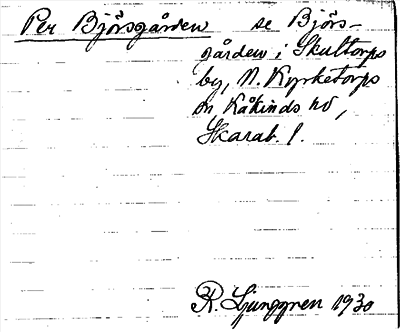 Per Björsgården se Björs-
gården i Skultorps
by, N. Kyrketorps
sn Kåkinds hd,
Skarab l.
R. Ljunggren 1930